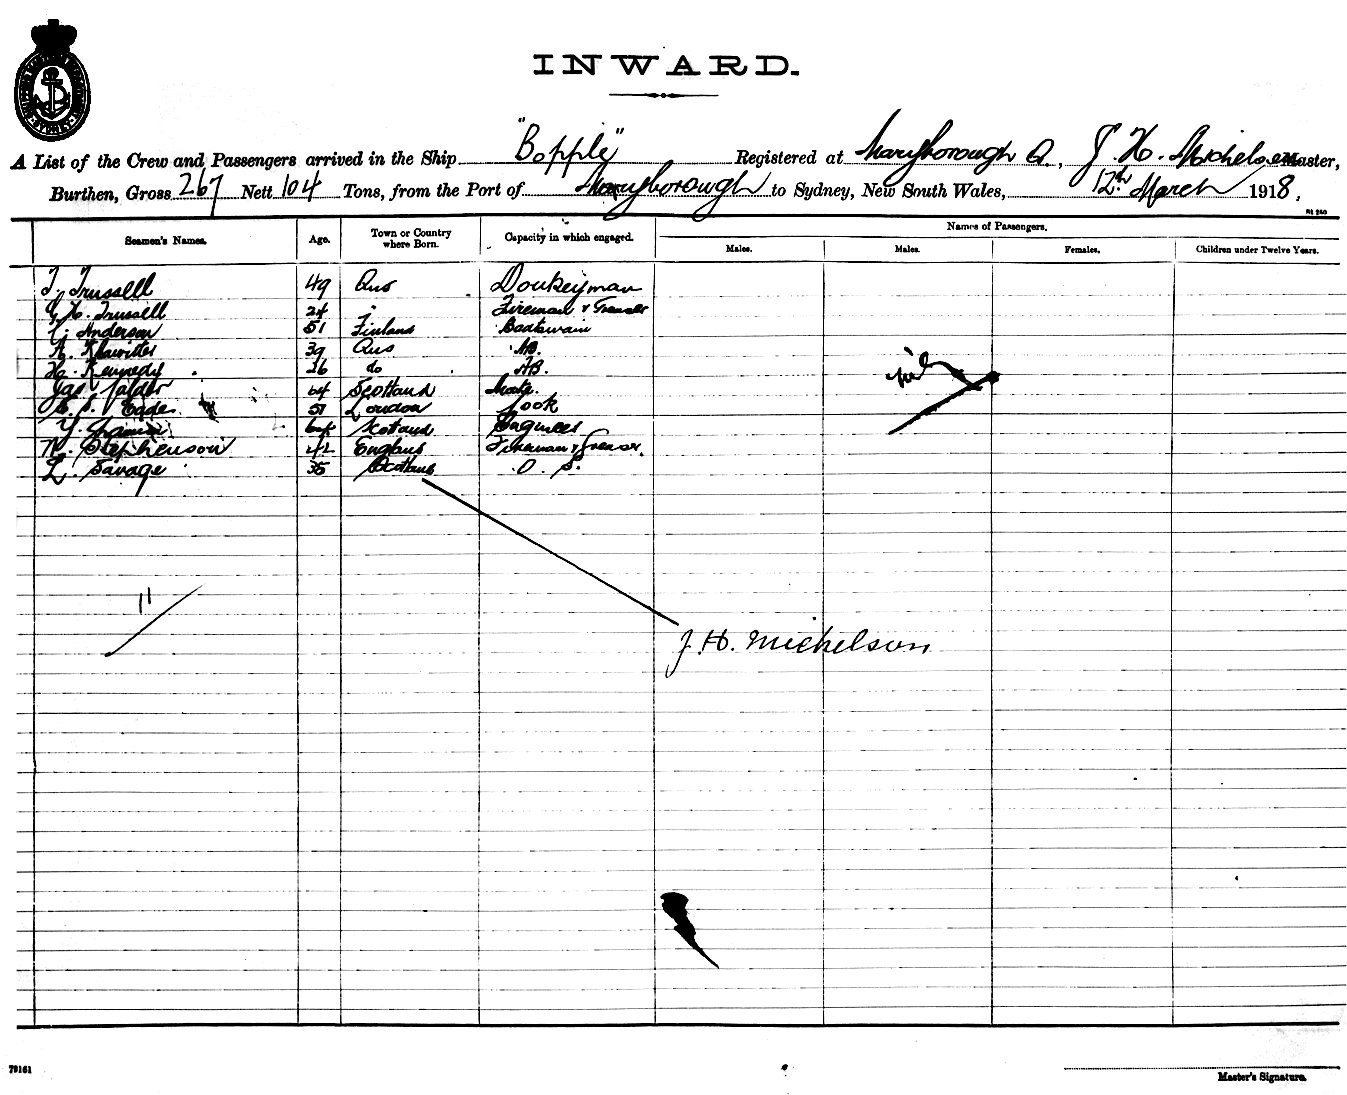 INWARD.
A List of the Crew and Passengers arrived in the Ship "Bopple" Registered at Maryborough Q., J. H. Michelsen Master,
Burthen, Gross 267 Nett 104 Tons, from the Port of Maryborough to Sydney, New South Wales, 12th March 1918,
Seamen's Names. Age. Town or Country where Born. Capacity in which engaged. Names of Passengers.
Males. Males. Females. Children under Twelve Years.
T. Trussell 49 Aus Donkeyman
G. H. Trussell 24 " Fireman & Greaser
C. Anderson 51 Finland Boatswain
A. Klawitter 39 Aus AB.
H. Kennedy 26 do AB.
Jas Calder 64 Scotland Mate.
E. S. Eade 51 London Cook
64 Scotland Engineer
R. Stephenson 42 England Fireman & Greaser.
L. Savage 35 Scotland O. S.
nil
11
J. H. Mickelson
79161
Master's Signature.